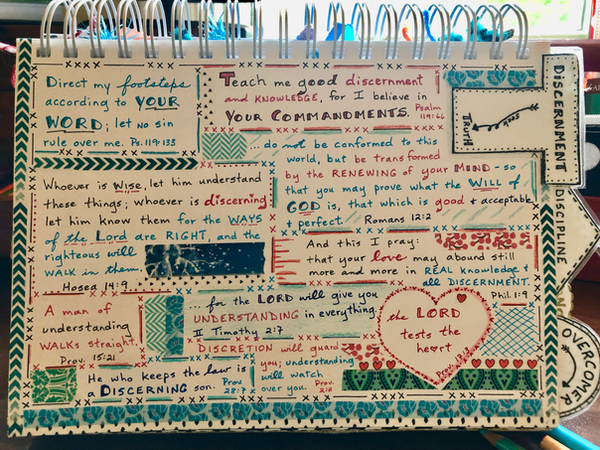 Direct my footsteps
according to YOUR
WORD; let no sin
rule over me. Ps. 119:133
Teach me good discernment
and KNOWLEDGE, for I believe in
YOUR COMMANDMENTS. Psalm
119:66
...do not be conformed to this
world, but be transformed
by the RENEWING of your MIND - so
that you may prove what the WILL of
GOD is, that which is good & acceptable
& perfect. Romans 12:2
Whoever is WISE, let him understand
these things; whoever is discerning
let him know them for the WAYS
of the Lord are RIGHT, and the
righteous will
WALK in them.
Hosea 14:9
And this I pray:
that your love may abound still
more and more in REAL knowledge &
all DISCERNMENT.
Phil. 1:9
A man of
understanding
WALKS straight.
Prov. 15:21
...for the LORD will give you
UNDERSTANDING in everything.
II Timothy 2:7
the LORD
tests the
heart
DISCRETION will guard
you; understanding
will watch
over you. Prov.
2:11
He who keeps the law is
a DISCERNING son. Prov
28:7
DISCERNMENT
seek
TRUTH
DISCIPLINE
OVERCOMER